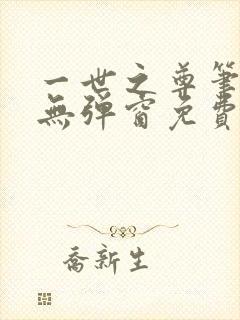 一世之尊筆
無彈窗免費
喬新生